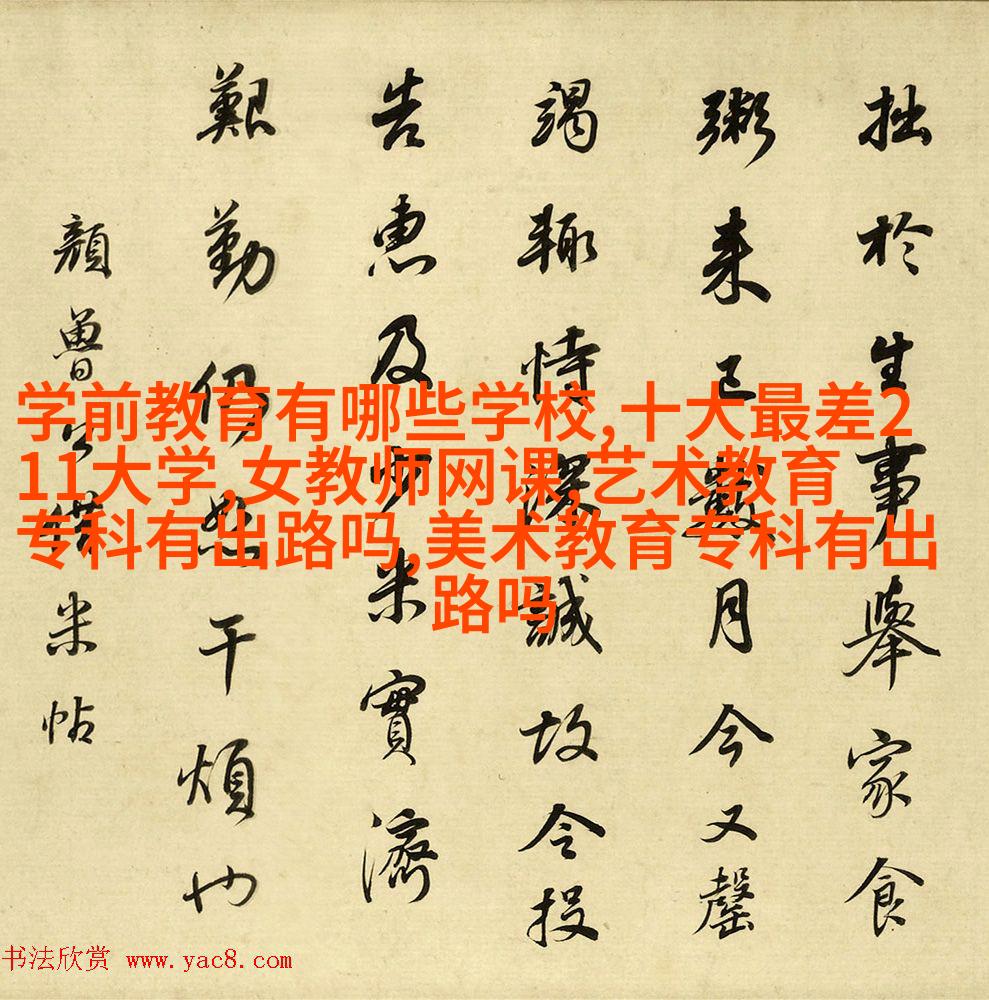 拙於生事舉家食
粥来已數月今又罄
竭輙恃深誠故令投
告惠及少米實濟
艱勤仍恕干煩也
顔魯公借米帖
学前教育有哪些学校,十大最差2
11大学,女教师网课,艺术教育
专科有出路吗,美术教育专科有出
路吗
书法欣赏 www.yac8.com